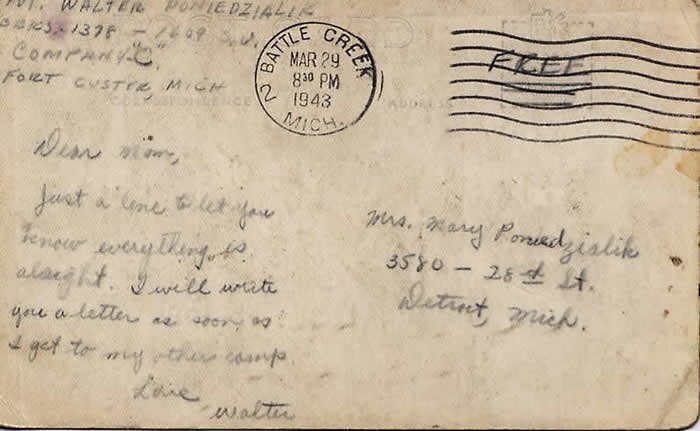 Pvt. WALTER PONIEDZIALIK
BRKS. 1378 - 1609 S.U.
COMPANY "C".
FORT CUSTER MICH
BATTLE CREEK
2
MAR 29
8 30 PM
1943
MICH.
FREE
CORRESPONDENCE
ADDRESS
Dear Mom,
Just a line to let you
know everything is
alright. I will write
you a letter as soon as
I get to my other camp.
Love
Walter
Mrs. Mary Poniedzialik
3580 - 28th St.
Detroit, Mich.